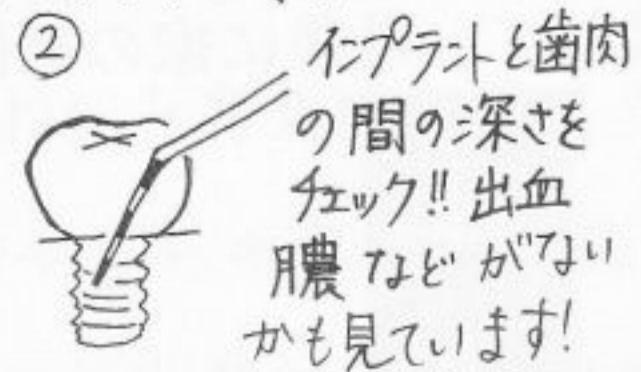 ②
インプラントと歯肉
の間の深さを
チェック!! 出血
膿などがない
かも見ています!